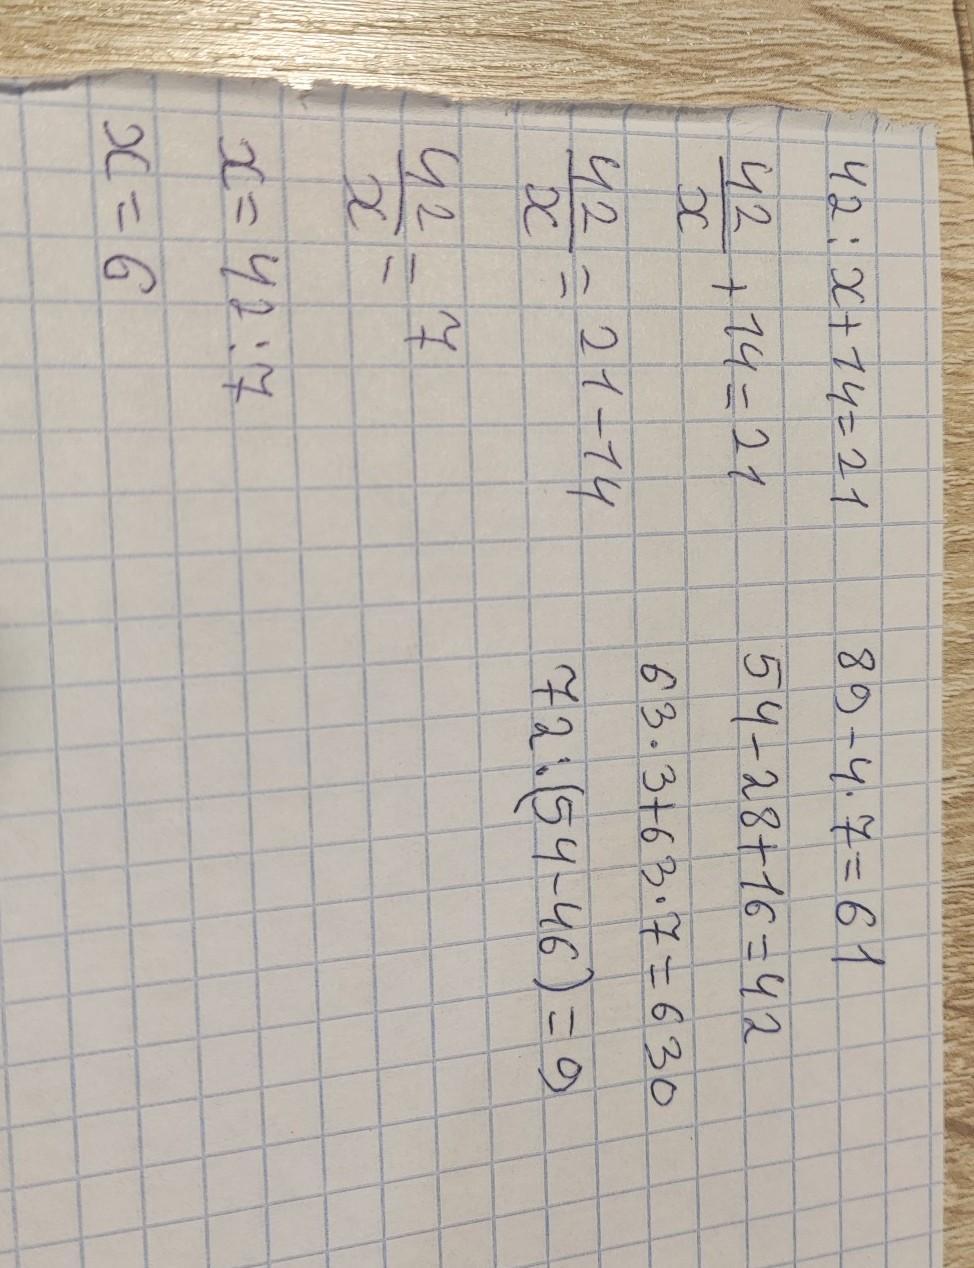 42 : x + 14 = 21
42/x + 14 = 21
42/x = 21 - 14
42/x = = 7
x = 42 : 7
x = 6
89 - 4 · 7 = 61
54 - 28 + 16 = 42
63 · 3 + 63 · 7 = 630
72 : (54 - 46) = 9